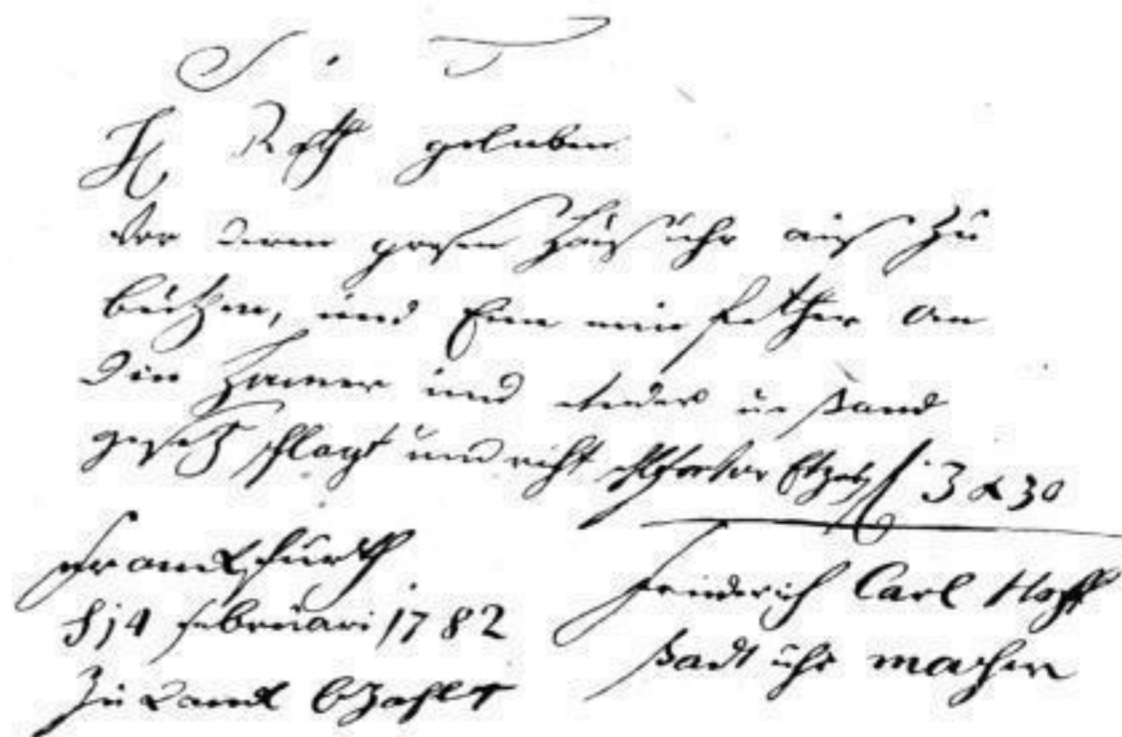 S. T.
H. Rath geluben
Vor deren grosen Hauß uhr auß zu
butzen, und Eine neue fether an
den Hamer und wieder in stand
gesetz schlagt und
f 3 x 30
Franckfurth
d 14 februari 1782
Zu Danck bezahlt
Friederich Carl Hoff
stadt uhr macher